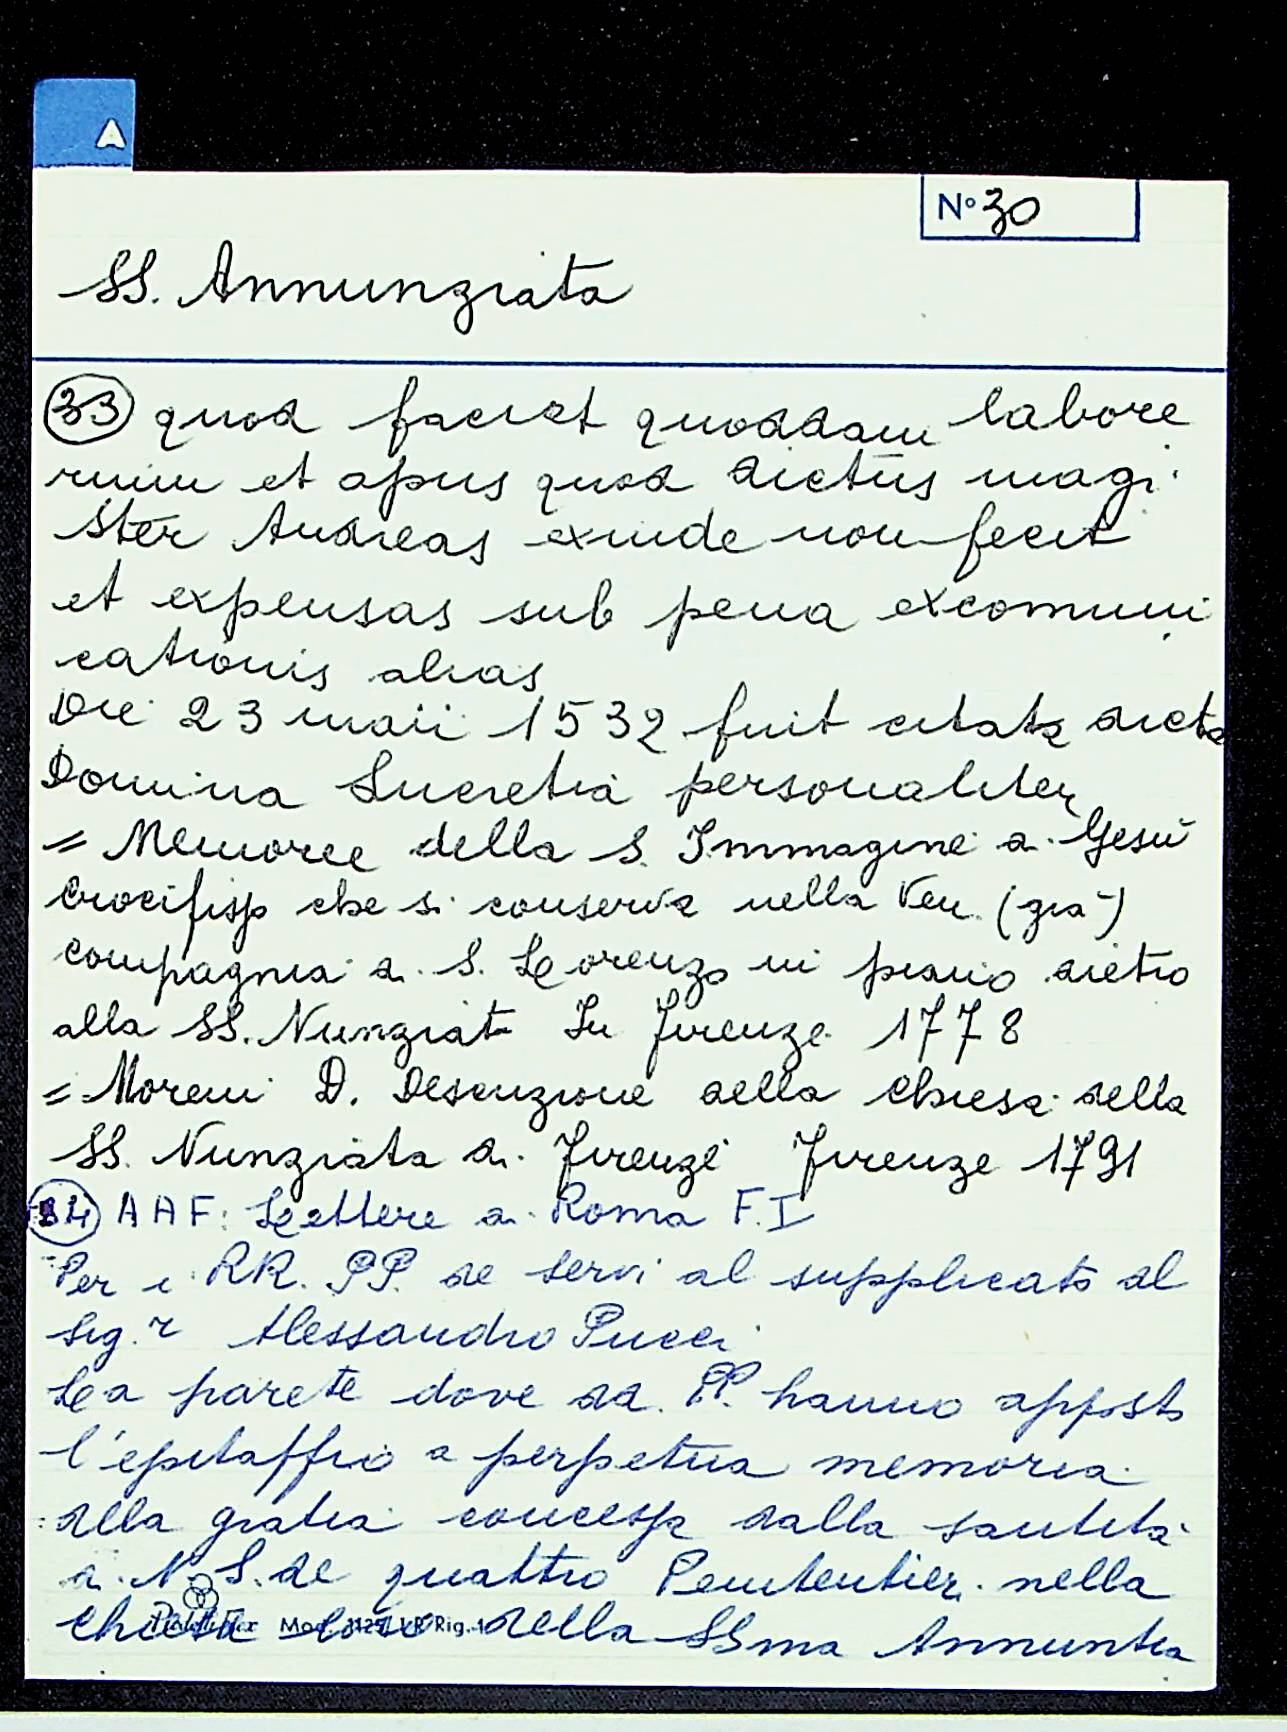 A
N° 30
SS. Annunziata
33 quod faciet quoddam labore
rium et opus quod dictus magi
ster Andreas exinde non fecit
et expensas sub pena excomuni
cationis alias
Die 23 maii 1532 fuit citata dicta
Domina Lucretia personaliter
= Memorie della S. Immagine di Gesù
Crocifisso che si conserva nella Ven. (già)
compagnia di S. Lorenzo in piano dietro
alla SS. Nunziata In Firenze 1778
= Moreni D. Descrizione della chiesa della
SS. Nunziata di Firenze Firenze 1791
34 AAF: Lettere di Roma F. I
Per i RR. PP. de Servi al supplicato al
Sig.r Alessandro Pucci
La parete dove di PP. hanno apposto
l'epitaffio a perpetua memoria
della gratia concessa dalla santità
di N. S. de quattro Penitentieri nella
chiesa loro della SSma Annuntia